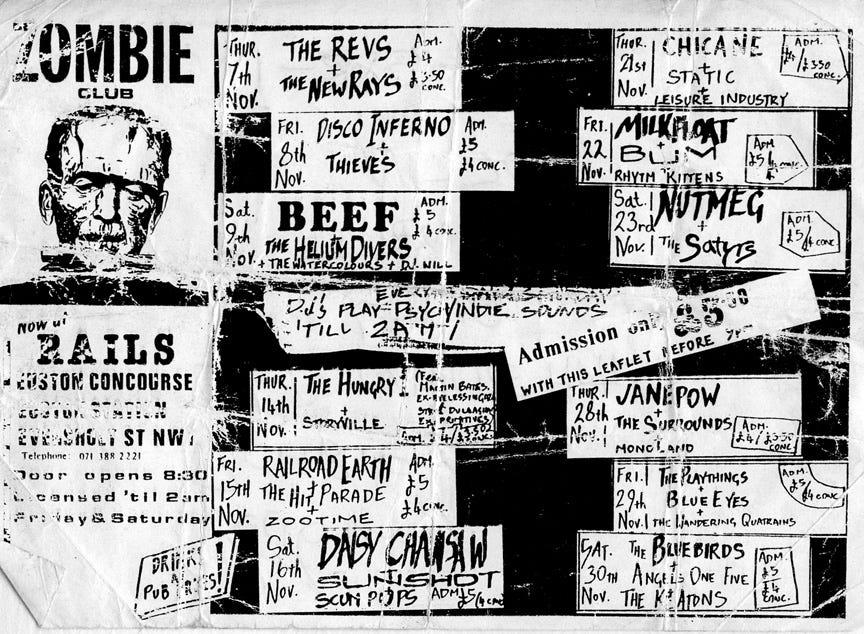 ZOMBIE
CLUB
NOW at
RAILS
EUSTON CONCOURSE
EUSTON STATION
EVERSHOLT ST NW1
Telephone: 071 388 2221
Door opens 8:30
Licensed 'til 2am
Friday & Saturday
DRINKS
AT
PUB PRICES!
THUR. 7th Nov.
THE REVS
+
THE NEW RAYS
ADM. £4
£3.50 CONC.
FRI. 8th Nov.
DISCO INFERNO
+
THIEVES
ADM. £5
£4 CONC.
Sat. 9th Nov.
BEEF
THE HELIUM DIVERS
+ THE WATERCOLOURS + DJ. WILL
ADM. £5
£4 CONC.
EVERY
DJ's PLAY PSYCH/INDIE SOUNDS
'TILL 2AM!
Admission only £3.00
WITH THIS LEAFLET BEFORE
THUR. 14th NOV.
THE HUNGRY I
+
STORYVILLE
(Feat.
MARTIN BATES.
FRI. 15th Nov.
RAILROAD EARTH
+
THE HIT PARADE
ZOOTIME
ADM. £5
£4 CONC.
Sat. 16th Nov.
DAISY CHAINSAW
SUNSHOT
SCUM PUPS
ADM £5/£4 CONC
THUR. 21st Nov.
CHICANE
+
STATIC
+
LEISURE INDUSTRY
ADM. £4/£3.50 CONC.
FRI. 22 Nov.
MILKFLOAT
+
BLIM
RHYTM KITTENS
ADM £5/4 CONC.
Sat. 23rd Nov.
NUTMEG
+
THE Satyrs
ADM. £5/£4 CONC
THUR. 28th Nov.
JANEPOW
+
THE SURROUNDS
+
MONOLAND
ADM. £4/£3.50 CONC.
FRI. 29th Nov.
THE PLAYTHINGS
+
BLUE EYES
THE WANDERING QUATRAINS
ADM. £5/£4 CONC
SAT. 30th Nov.
THE BLUEBIRDS
+
ANGELS ONE FIVE
+
THE KEATONS
ADM. £5
£4 CONC.